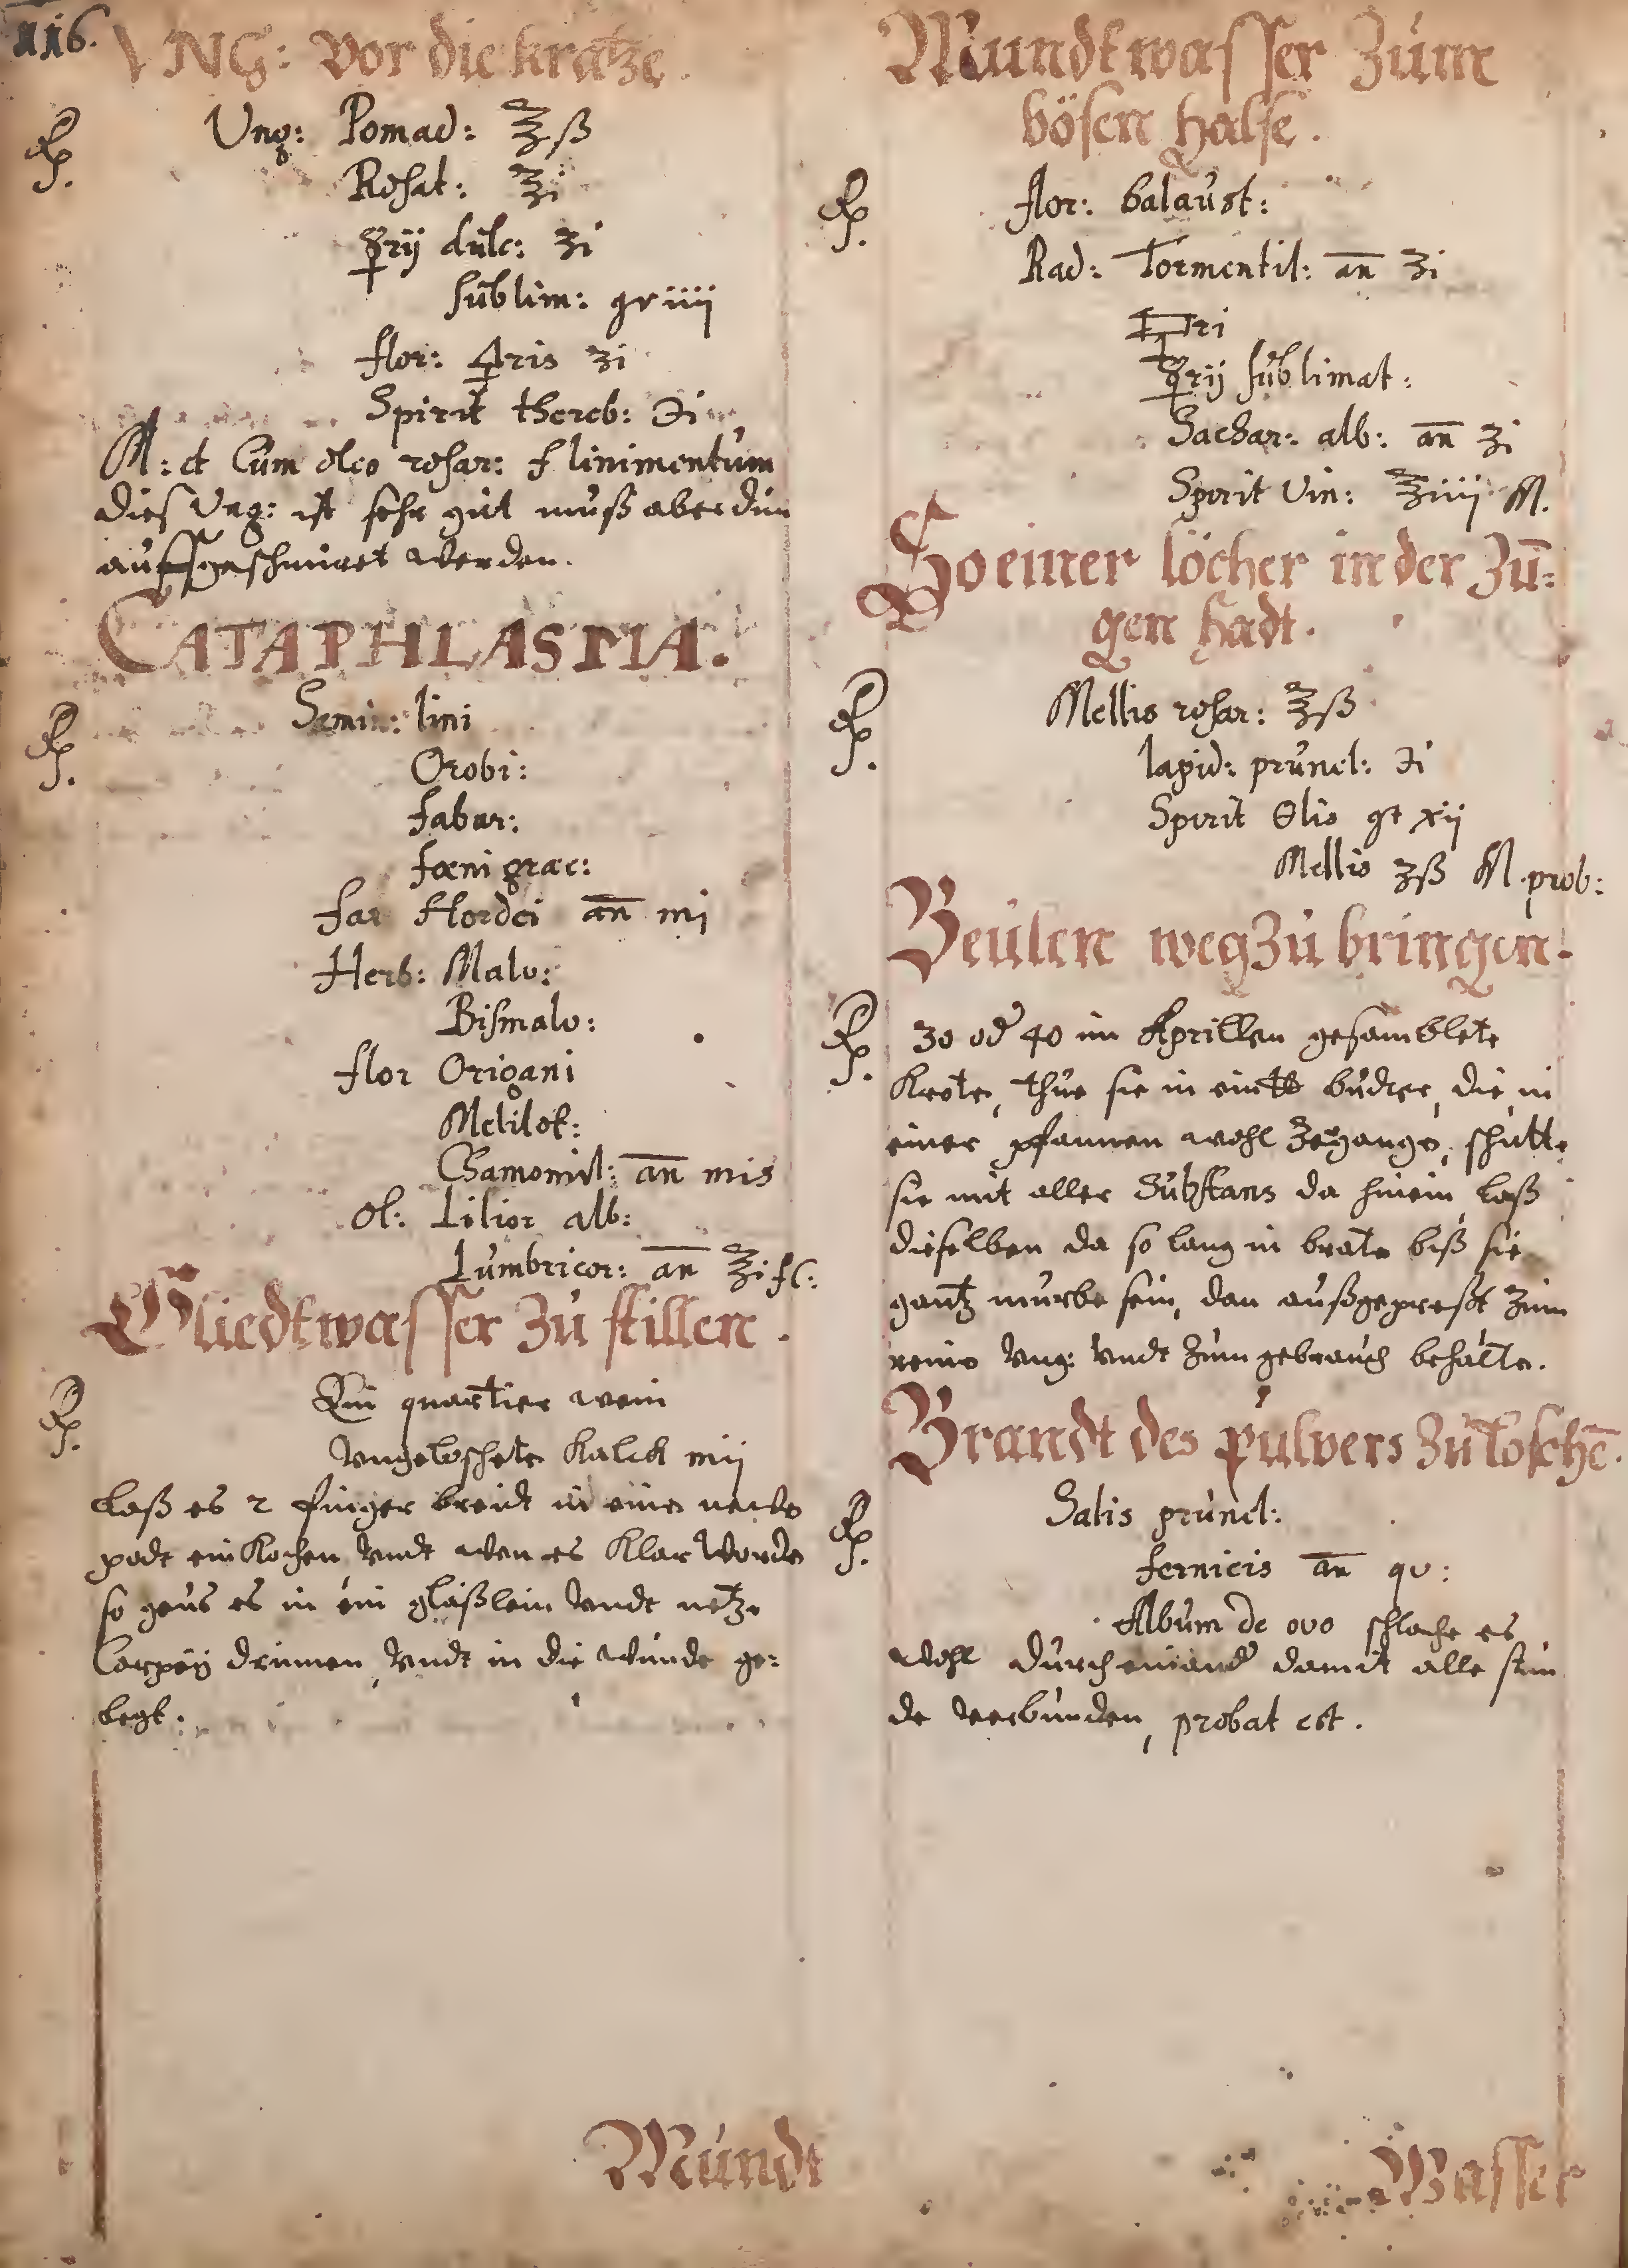 116.
VNG: Vor die kratze.
Rp. Ung: Pomad: ℥ß
Rosat: ℥i
☿rij dulc: ʒi
sublim: gr iiij
flor: ♃ris ʒi
Spirit thereb: ℈i
M: et Cum oleo rosar: f linimentum
dies Ung: ist sehr gut muß aber dün
auffgeschmiret werden.
CATAPHLASMA.
Rp. Semin: lini
Orobi:
fabar:
fœni græc:
far Hordei an̄ mj
Herb: Malv:
Bismalv:
flor Origani
Melilot:
Chamomil: an̄ mis
ol: Lilior alb:
Lumbricor: an̄ ℥i fC:
Gliedtwasser Zu stillen.
Rp. Ein quartier wein
Vngeloschete Kalck mij
Laß es 2 finger breidt in eine
podt ein Kochen Vndt wen es Klar worde
so geus es in ein gläßlein Vndt netze
Carpeÿ drinnen, Vndt in die wunde ge:
legt.
Mundt
Mundtwasser Zum
bösen halse.
Rp. flor: balaust:
Rad: Tormentil: an̄ ʒi
☿rij sublimat:
Sachar: alb: an̄ ʒi
Spirit Vin: ℥iiij M.
So einer löcher in der Zu̅:
gen hadt.
Rp. Mellis rosar: ℥ß
lapid: prunel: ℈i
Spirit Olio gt xij
Mellis ʒß M. prob:
Beulen weg Zu bringen.
Rp. 30 od 40 im Aprillen gesamblete
Krote, thue sie in budter, die in
einer pfannen wohl Zergange, schutte
sie mit aller Substans da hinein, laß
dieselben da so lang in brate biß sie
gantz murbe sein, dan außgepreßt Zum
reine Vng: Vndt Zum gebrauch behalte.
Brandt des pulvers Zu loschē.
Rp. Salis prunel:
fernicis an̄ qv:
Album de ovo schlache es
wohl durch einand damit alle stun
de verbunden, probat est.
Wasser